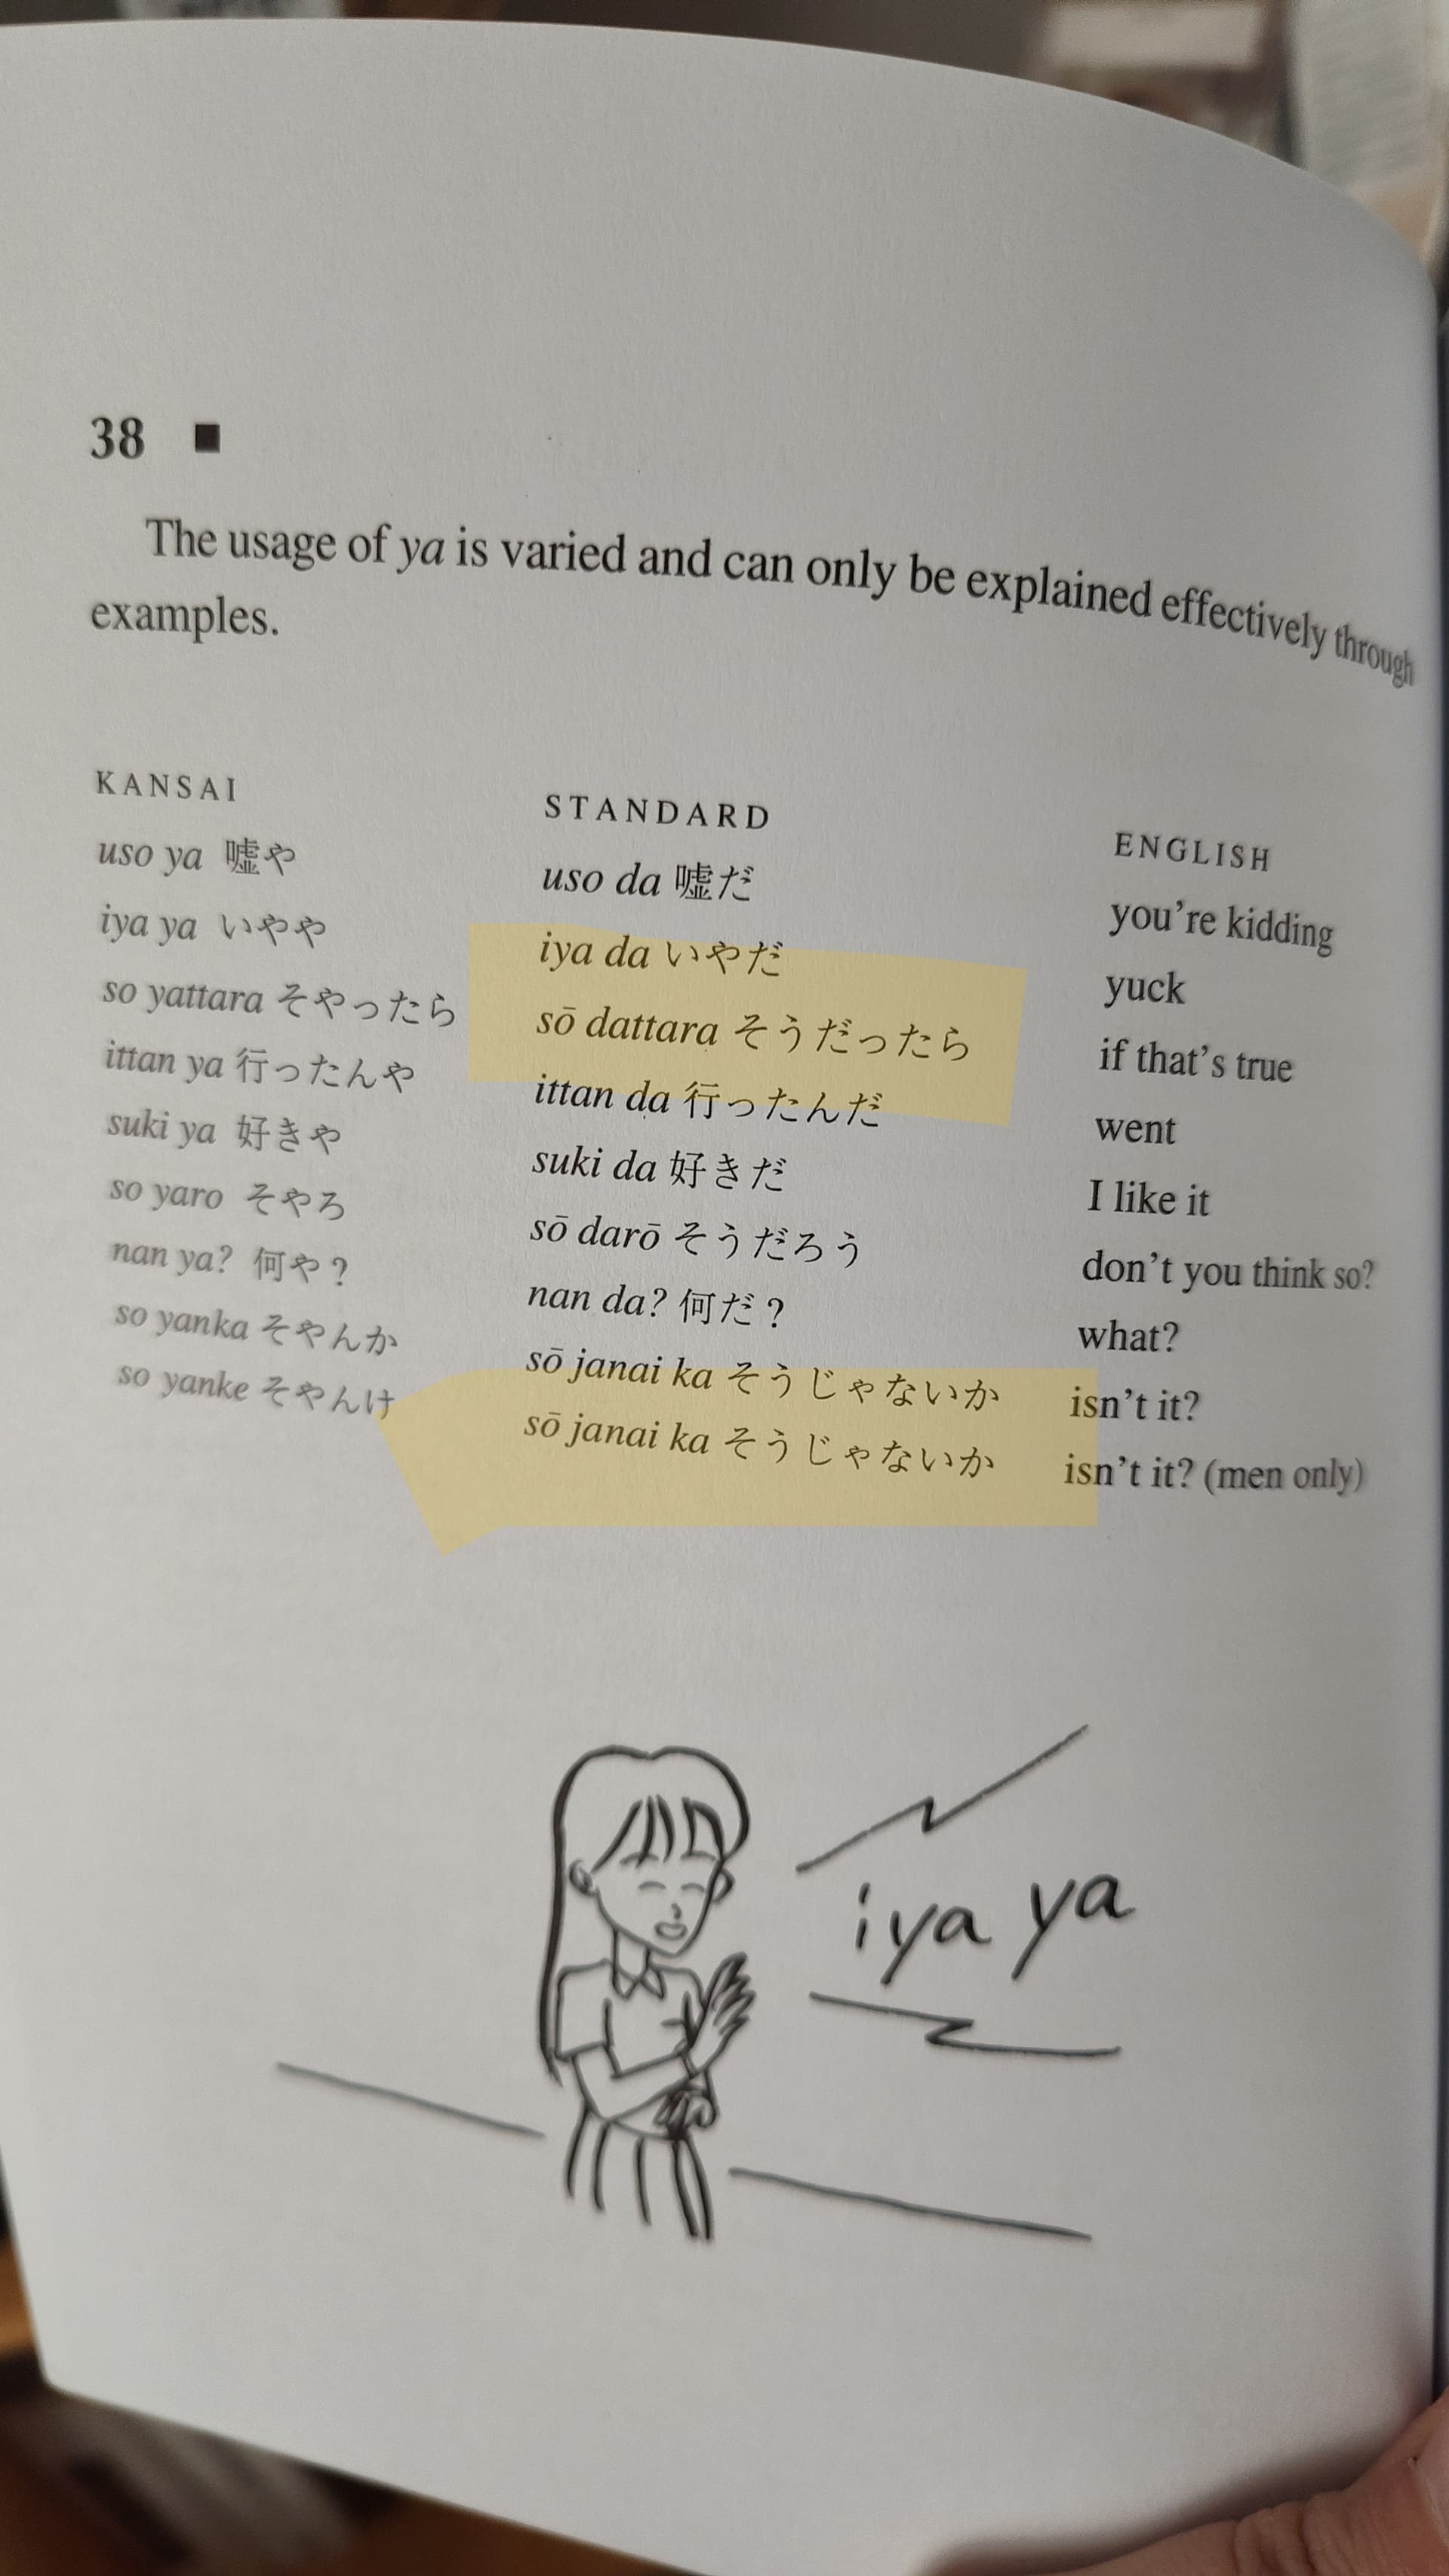 38 ■
The usage of ya is varied and can only be explained effectively through
examples.
KANSAI STANDARD ENGLISH
uso ya 嘘や uso da 嘘だ you're kidding
iya ya いやや iya da いやだ yuck
so yattara そやったら sō dattara そうだったら if that's true
ittan ya 行ったんや ittan da 行ったんだ went
suki ya 好きや suki da 好きだ I like it
so yaro そやろ sō darō そうだろう don't you think so?
nan ya? 何や？ nan da? 何だ？ what?
so yanka そやんか sō janai ka そうじゃないか isn't it?
so yanke そやんけ sō janai ka そうじゃないか isn't it? (men only)
iya ya